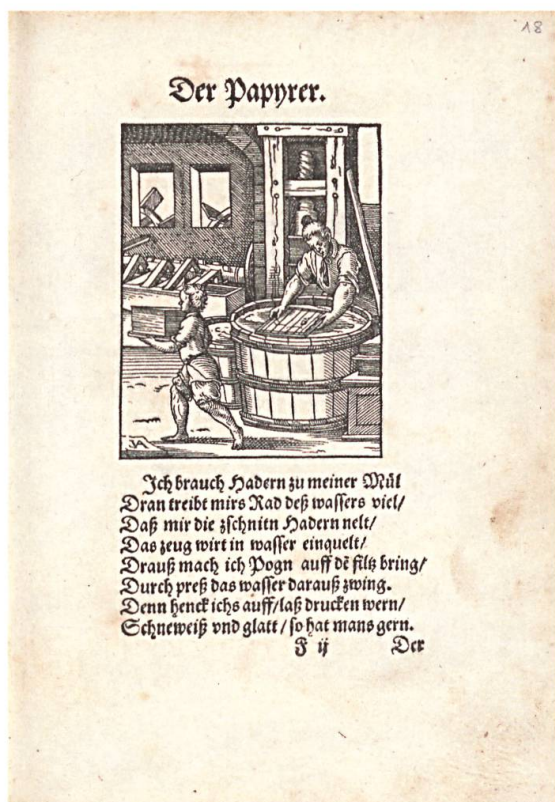 18
Der Papyrer.
IA
Ich brauch Hadern zu meiner Mül
Dran treibt mirs Rad deß wassers viel/
Daß mir die zschnitn Hadern nelt/
Das zeug wirt in wasser einquelt/
Drauß mach ich Pogn auff dẽ filtz bring/
Durch preß das wasser darauß zwing.
Denn henck ichs auff/laß drucken wern/
Schneweiß vnd glatt/so hat mans gern.
F ij Der